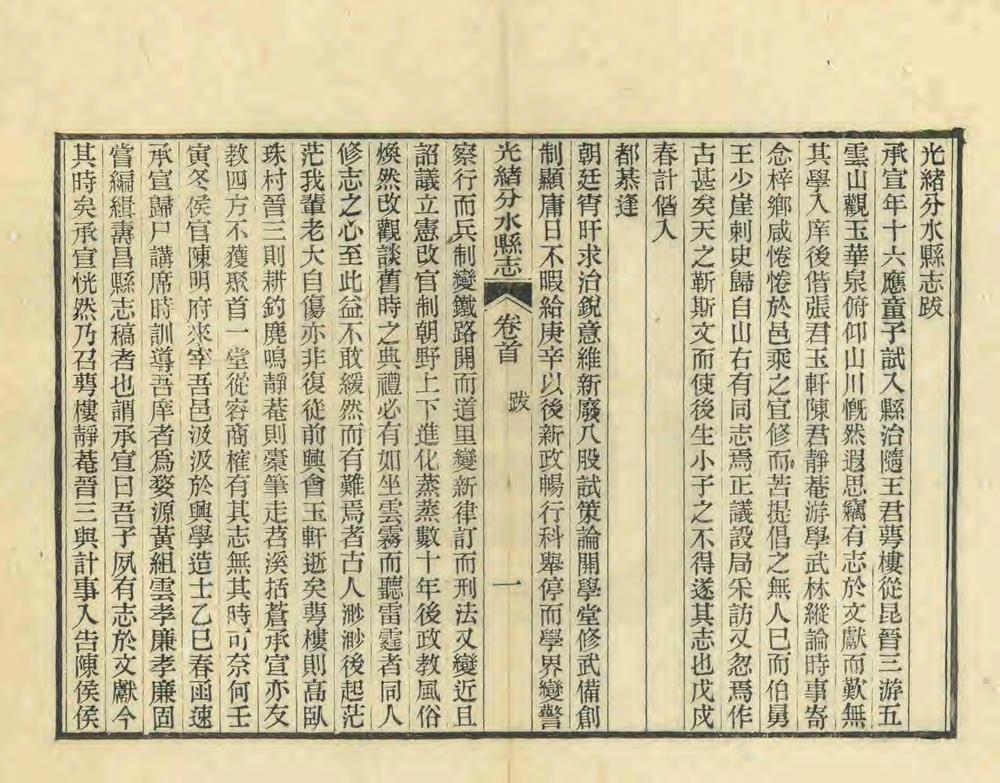 光緒分水縣志跋
承宣年十六應童子試入縣治隨王君蕚樓從昆晉三游五
雲山觀玉華泉俯仰山川慨然遐思竊有志於文獻而歎無
其學入庠後偕張君玉軒陳君靜菴游學武林縱論時事寄
念梓鄉咸惓惓於邑乘之宜修而苦提倡之無人已而伯舅
王少崖刺史歸自山右有同志焉正議設局采訪又忽焉作
古甚矣天之靳斯文而使後生小子之不得遂其志也戊戌
春計偕入
都恭逢
朝廷宵旰求治銳意維新廢八股試策論開學堂修武備創
制顯庸日不暇給庚辛以後新政暢行科舉停而學界變警
光緒分水縣志 卷首 跋 一
察行而兵制變鐵路開而道里變新律訂而刑法又變近且
詔議立憲改官制朝野上下進化蒸蒸數十年後政教風俗
煥然改觀談舊時之典禮必有如坐雲霧而聽雷霆者同人
修志之心至此益不敢緩然而有難焉者古人渺渺後起茫
茫我輩老大自傷亦非復從前興會玉軒逝矣蕚樓則高臥
珠村晉三則耕釣鹿鳴靜菴則橐筆走苕溪括蒼承宣亦友
教四方不獲聚首一堂從容商榷有其志無其時可奈何壬
寅冬侯官陳明府來宰吾邑汲汲於興學造士乙巳春函速
承宣歸尸講席時訓導吾庠者爲婺源黃組雲孝廉孝廉固
嘗編緝壽昌縣志稿者也謂承宣曰吾子夙有志於文獻今
其時矣承宣恍然乃召蕚樓靜菴晉三與計事入告陳侯侯